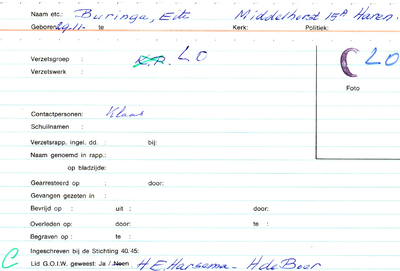 Naam etc.: Buringa, Eite Middelhorst 15A Haren.
Geboren: 29-11- te Kerk: Politiek:
Verzetsgroep : K.P. LO
LO
Verzetswerk :
Foto
Contactpersonen: Klaas
Schuilnamen :
Verzetsrapp. ingel. dd. : bij:
Naam genoemd in rapp.:
op bladzijde:
Gearresteerd op : door:
Gevangen gezeten in :
Bevrijd op : uit : door:
Overleden op: door: te :
Begraven op : te :
Ingeschreven bij de Stichting 40.'45:
C Lid G.O.I.W. geweest: Ja / Neen H E Harsema - H de Boer